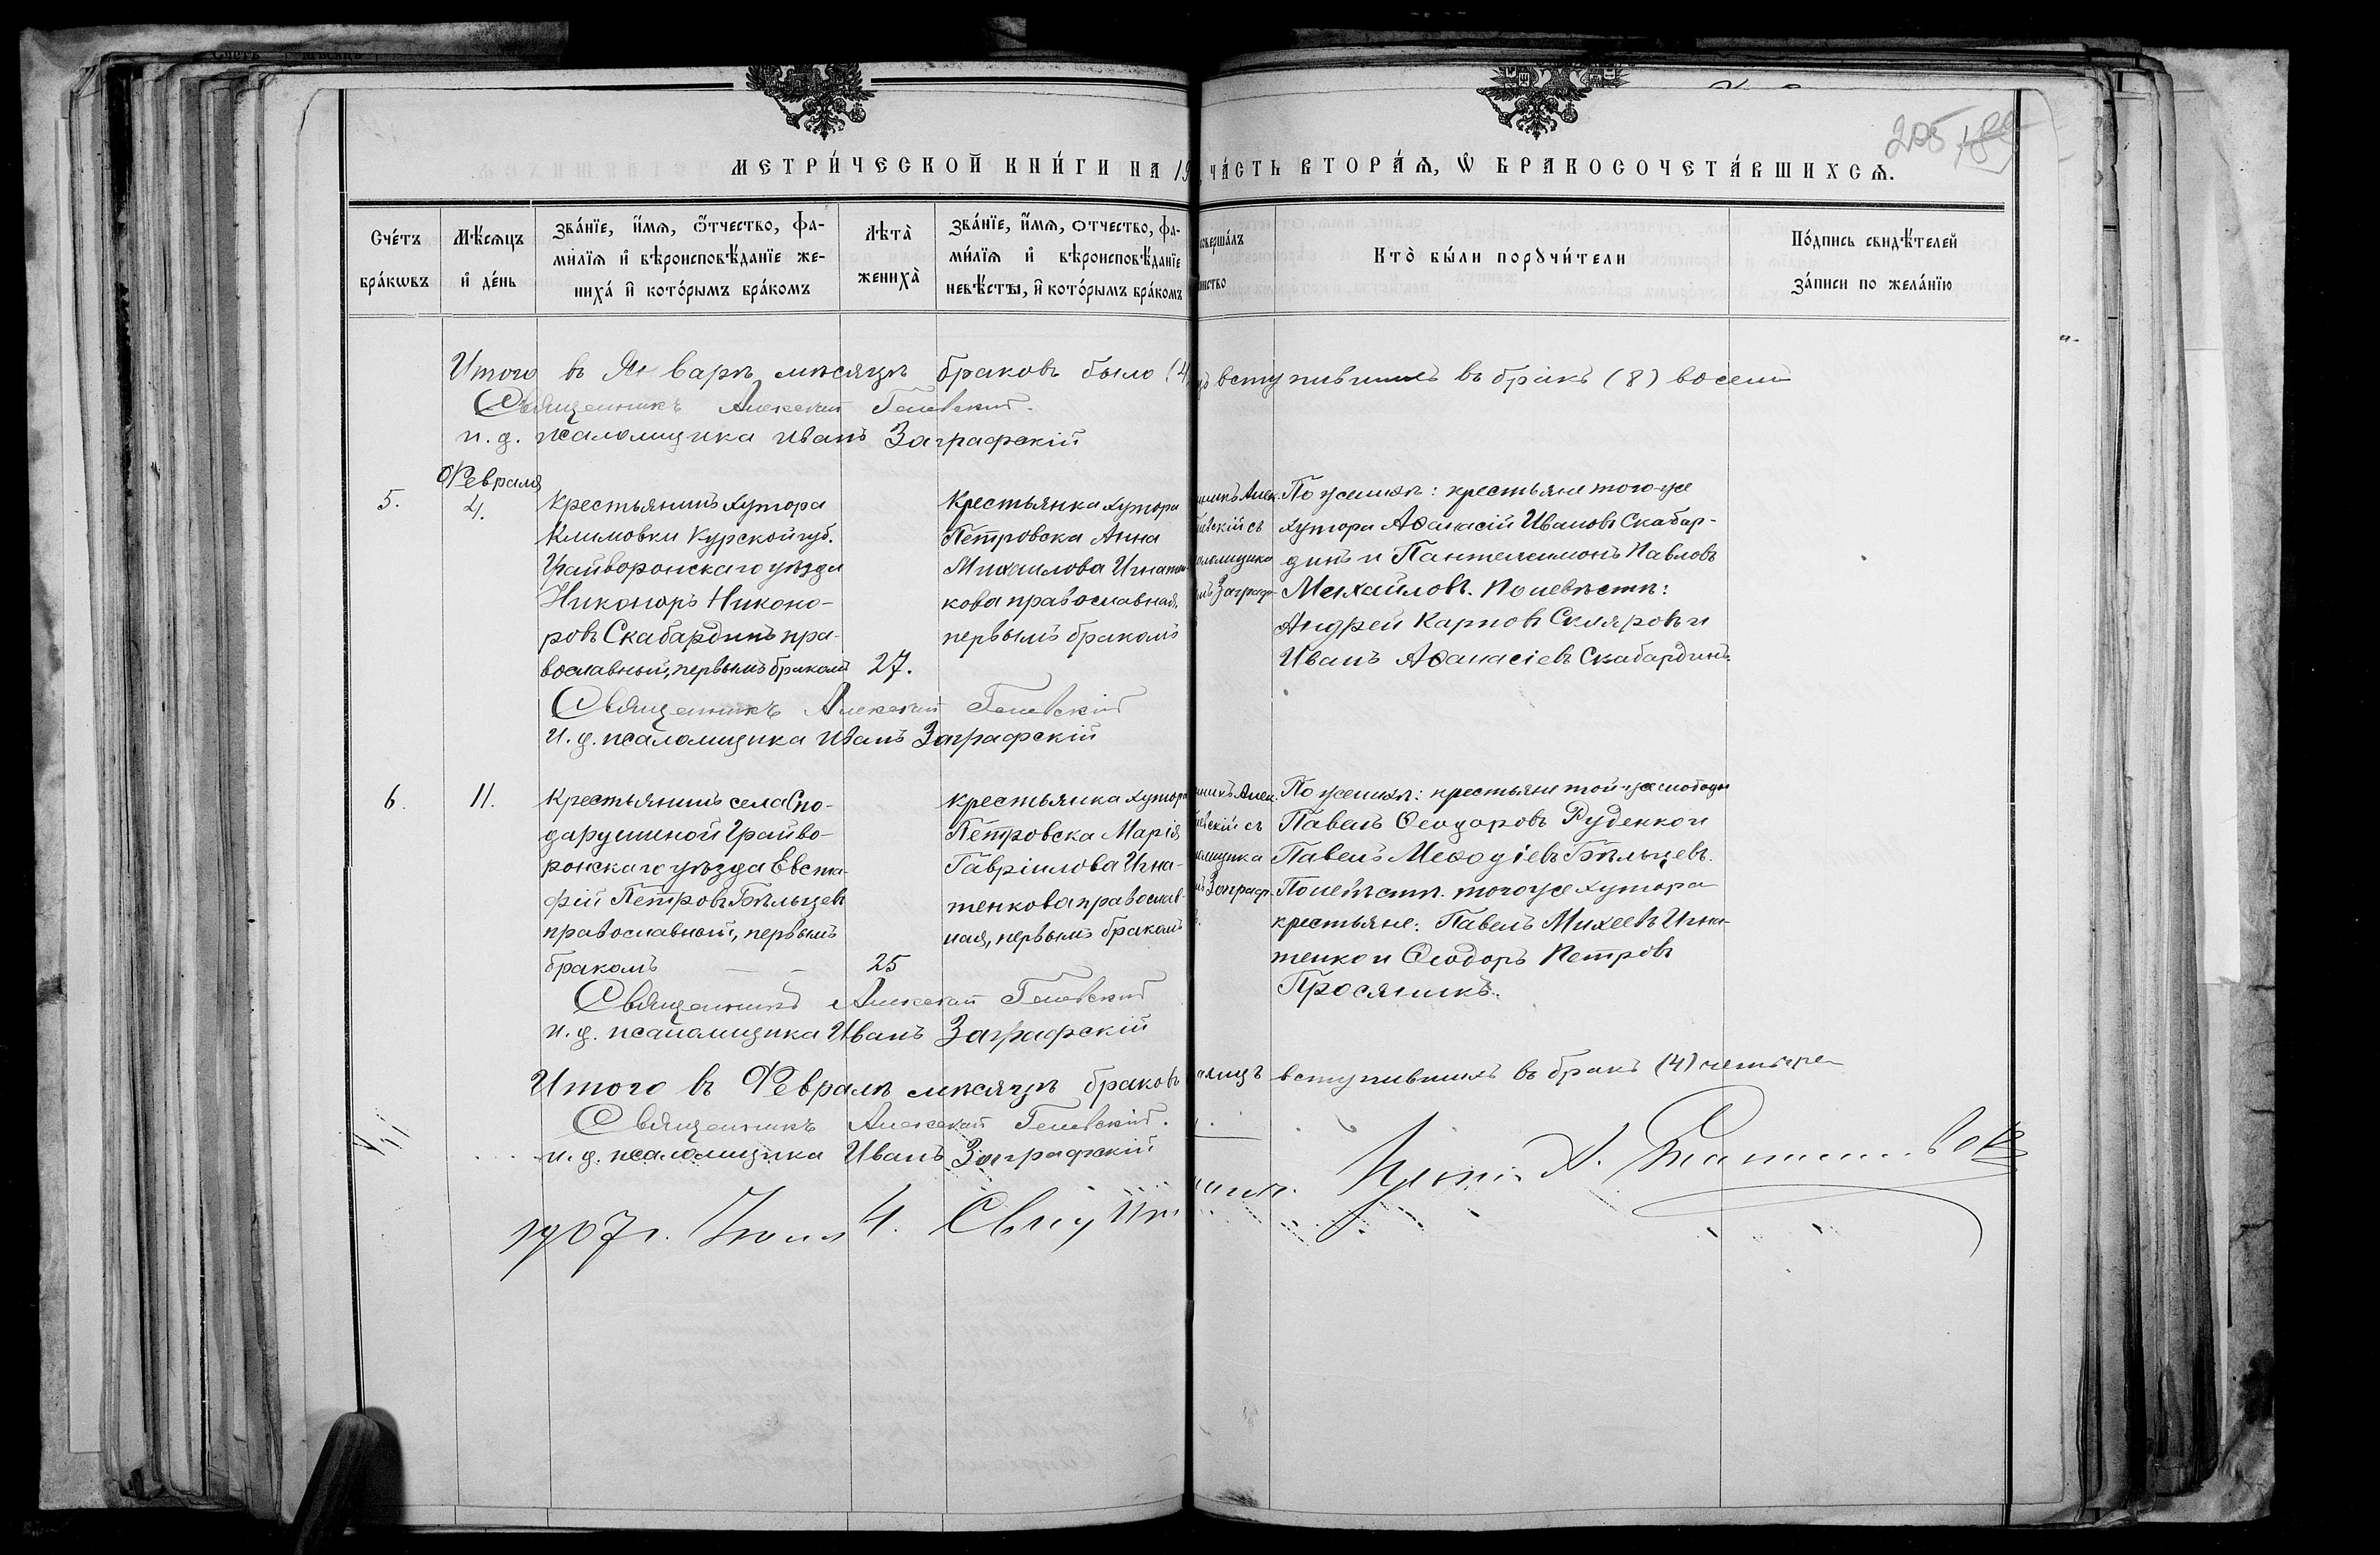 205
МЕТРИ́ЧЕСКОЙ КНИ́ГИ НА 19
ЧА́СТЬ ВТОРА́Я, Ѡ БРАКОСОЧЕТА́ВШИХСѦ.
Сче́тъ бра́кѡвъ
Мѣ́сѧцъ и҆ де́нь
Зва́нїе, и҆́мѧ, ѻ҆́тчество, фа-
ми́лїѧ и҆ вѣроисповѣ́данїе же-
ниха́ и҆ кото́рымъ бра́комъ
Лѣта̀ жениха̀
Зва́нїе, и҆́мѧ, отчество, фа-
ми́лїѧ и҆ вѣроисповѣ́данїе
невѣ́сты, и҆ кото́рымъ бра́комъ
соверша́лъ
Кто̀ бы́ли порꙋчи́тели
По́дпись свидѣ́телей
за́писи по жела́нїю
Итого въ Январѣ мѣсяцѣ браковъ было (4
вступившихъ въ бракъ (8) восемь
Священникъ Алексѣй
и. д. псаломщика Иванъ Заграфскій
Февраля
5.
4.
Крестьянинъ хутора
Климовки Курской губ.
Грайворонскаго уѣзда
Никоноръ Никоно-
ровъ Скабардинъ пра-
вославный, первымъ бракомъ
27.
Крестьянка хутора
Петровска Анна
Михаилова Игнатен-
кова православная,
первымъ бракомъ
никъ Алек.
евскій съ
ломщика
нъ Заграф-
По женихѣ: крестьяне того-же
хутора Аѳанасій Ивановъ Скабар-
динъ и Пантелеимонъ Павловъ
Михайловъ. По невѣстѣ:
Андрей Карповъ Скляровъ и
Иванъ Аѳанасіевъ Скабардинъ.
Священникъ Алексѣй
И. д. псаломщика Иванъ Заграфскій
6.
11.
Крестьянинъ села Спо-
дарушиной Грайво-
ронскаго уѣзда Евста-
фій Петровъ Бѣльцевъ
православной, первымъ
бракомъ
25
крестьянка хутора
Петровска Марія
Гавріилова Игна-
тенкова православ-
ная, первымъ бракомъ
никъ Алек.
евскій съ
ломщика
нъ Заграф-
По женихѣ: крестьяне той-же слободы
Павелъ Ѳеодоровъ Руденко и
Павелъ Меѳодіевъ Бѣльцевъ.
По невѣстѣ. того же хутора
крестьяне: Павелъ Михеевъ Игна-
тенко и Ѳеодоръ Петровъ
Просяникъ.
Священникъ Алексѣй
и. д. псаломщика Иванъ Заграфскій
Итого въ Февралѣ мѣсяцѣ браковъ
а лицъ вступившихъ въ бракъ (4) четыре
Священникъ Алексѣй
и. д. псаломщика Иванъ Заграфскій
1907 г. Іюля 4.